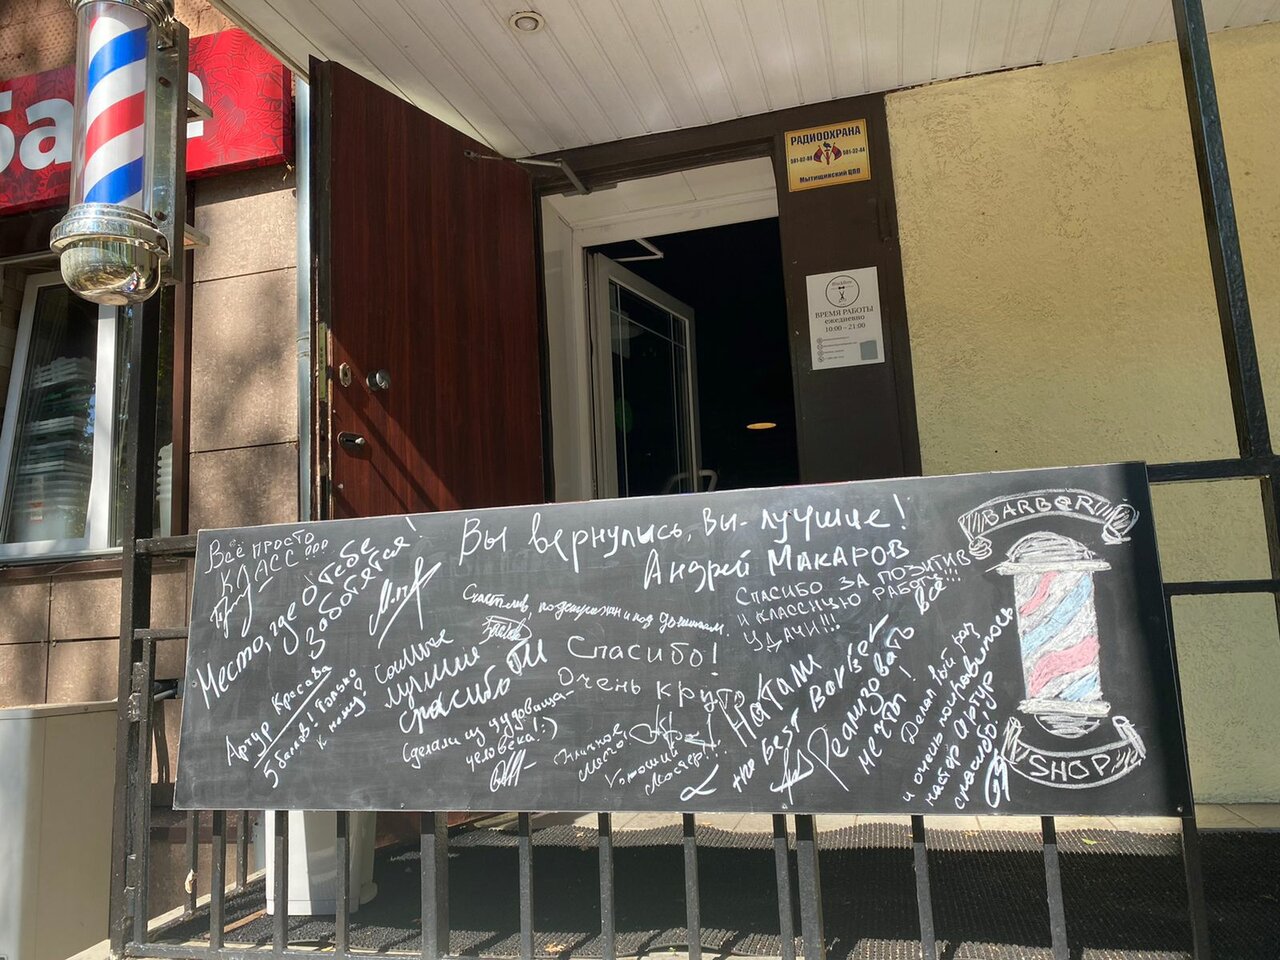 РАДИООХРАНА
Мытищинский ЦПП
ВРЕМЯ РАБОТЫ
ежедневно
10:00 - 21:00
Всё просто
КЛАСС
Место, где о тебе
заботятся!
Вы вернулись, вы - лучшие!
Андрей Макаров
СПАСИБО ЗА ПОЗИТИВ
И КЛАССНУЮ РАБОТУ!!!
УДАЧИ!!!
Счастлив, подстрижен и под
Спасибо!
Очень круто
Самые
лучшие
спасибо
Артур Красава
5 баллов! Только
к нему!
Сделали из чудовища-
человека! :)
Отличное
место!
Хороший
мастер!
Наташи
the Best Barber
Реализовать
все
мечты!
Делал 1вый раз
и очень понравилось
мастер Артур
спасибо!
BARBOR
SHOP